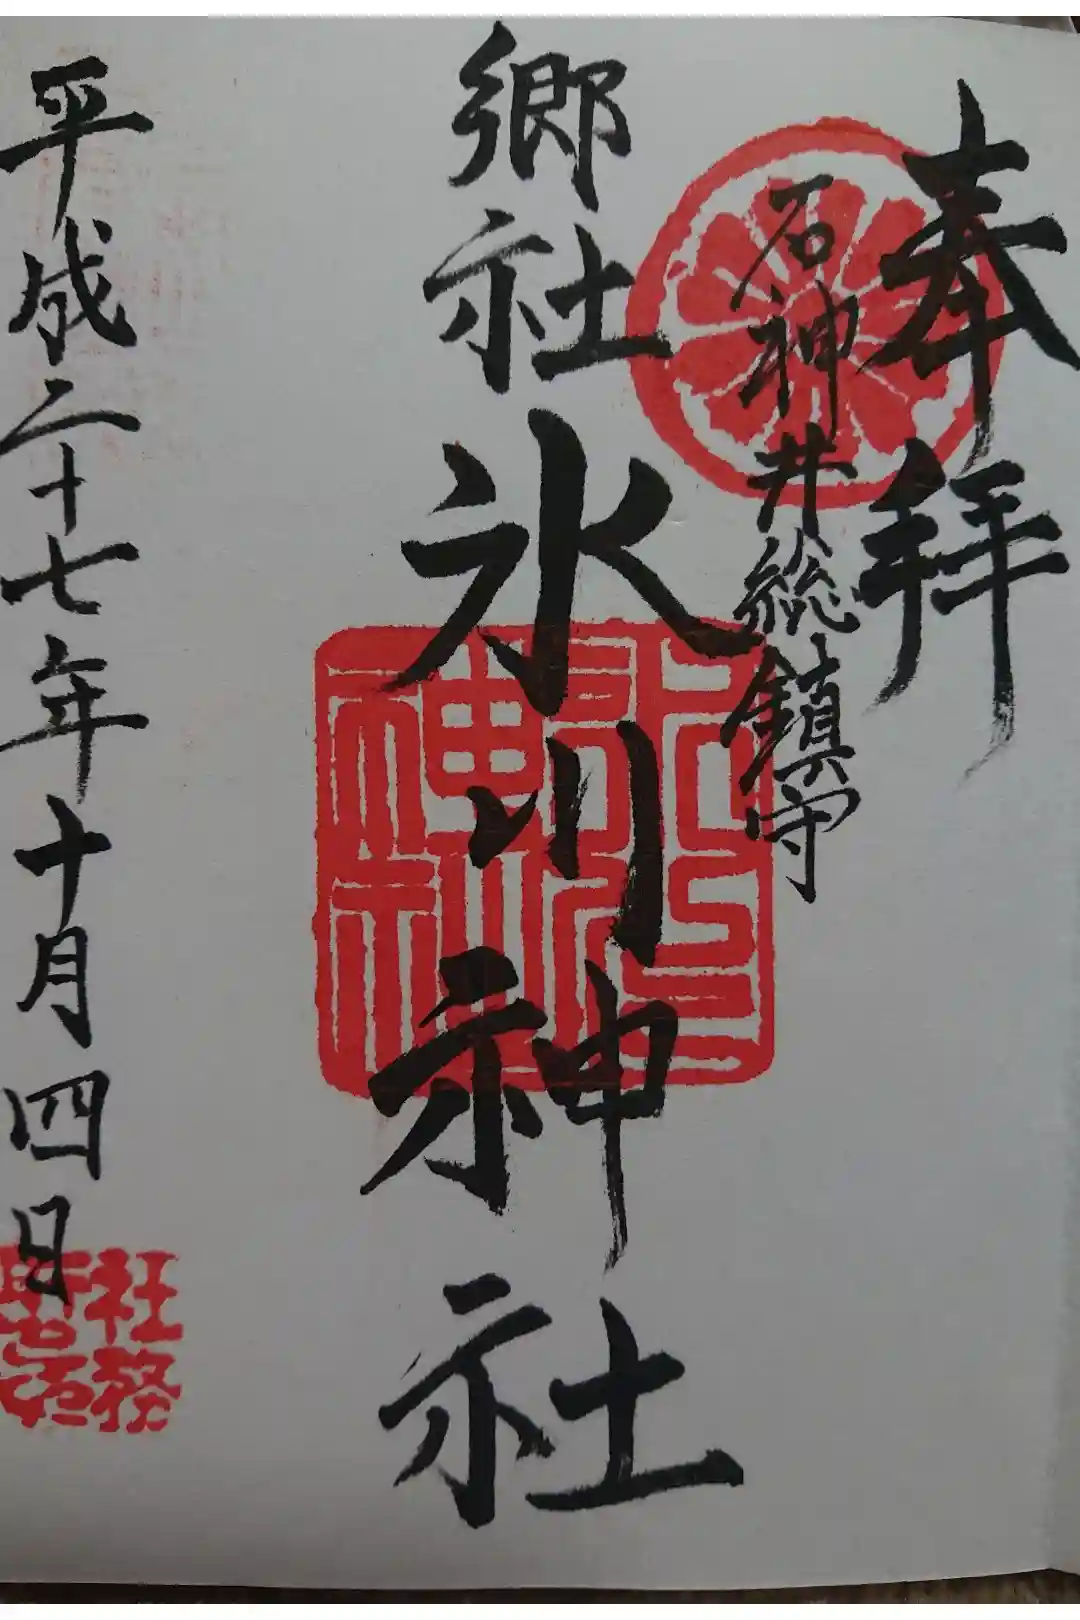 奉拝
石神井総鎮守
郷社氷川神社
氷川神社
平成二十七年十月四日
社務